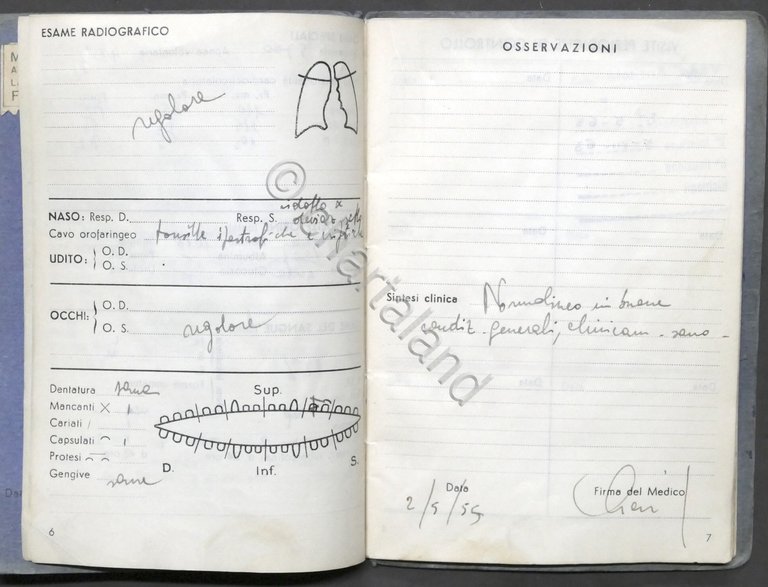 ESAME RADIOGRAFICO
regolare
NASO: Resp. D. Resp. S. ridotta x
deviaz. setto
Cavo orofaringeo tonsille ipertrofiche e criptiche
UDITO: O. D.
O. S.
OCCHI: O. D.
O. S.
regolare
Dentatura sana
Mancanti X 1
Cariati /
Capsulati 1
Protesi
Gengive sane
Sup.
D. Inf. S.
6
OSSERVAZIONI
Sintesi clinica Normolineo in buone
condiz. generali, clinicam. sano -
Data
2/5/55
Firma del Medico
7
© Chartaland